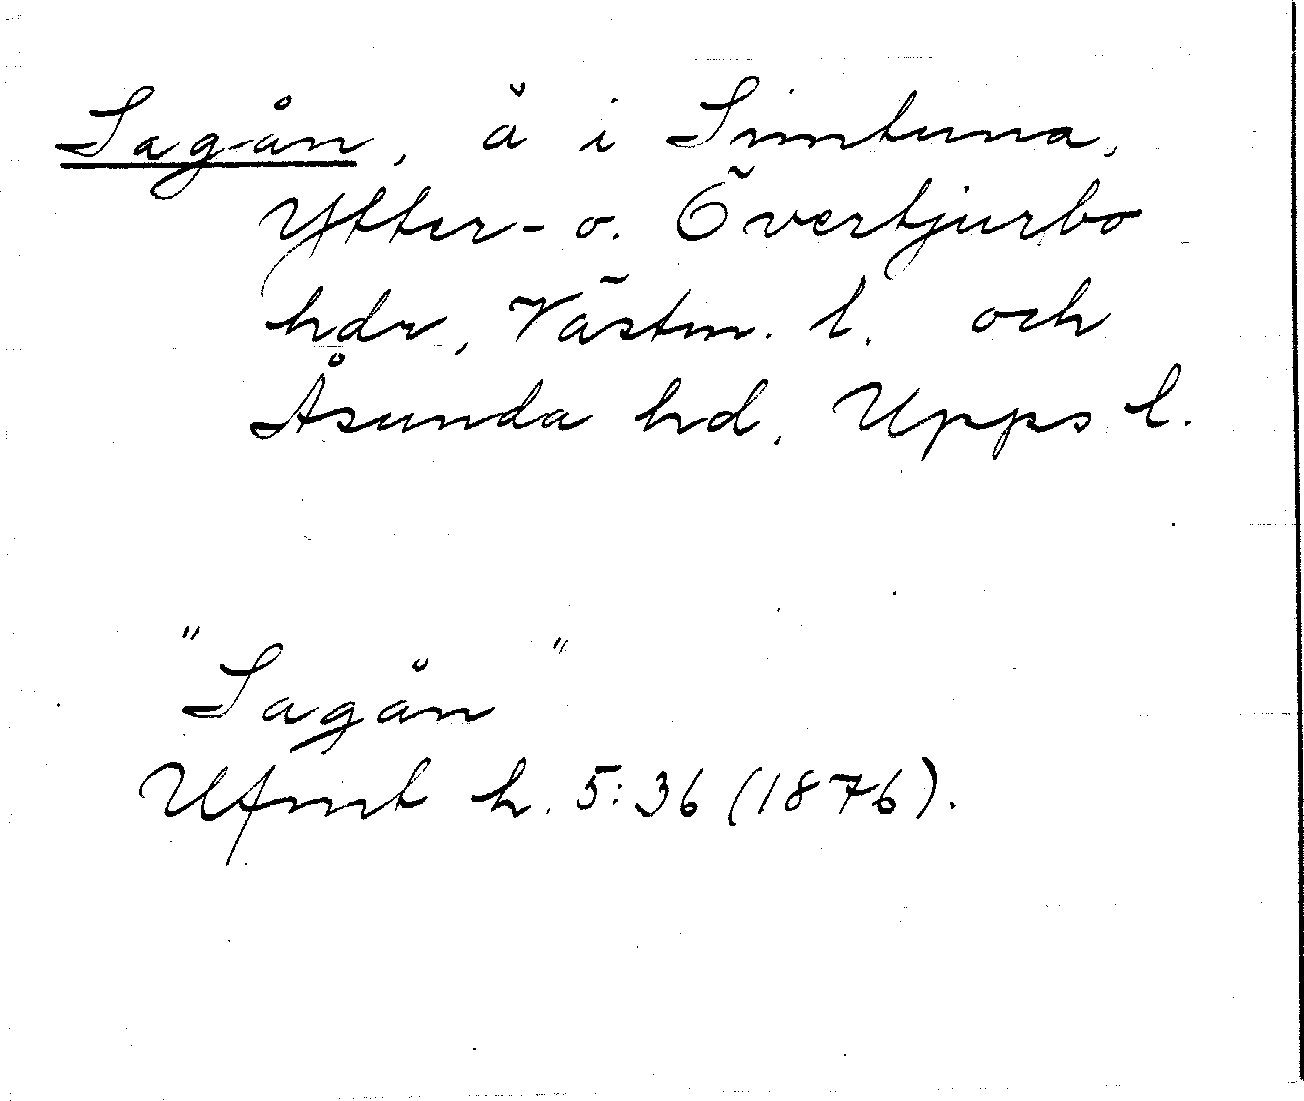 Sagån, å i Simtuna,
Ytter- o. Övertjurbo
hdr, Västm. l. och
Åsunda hd, Upps l.
"Sagån"
Ufmt h. 5:36 (1876).